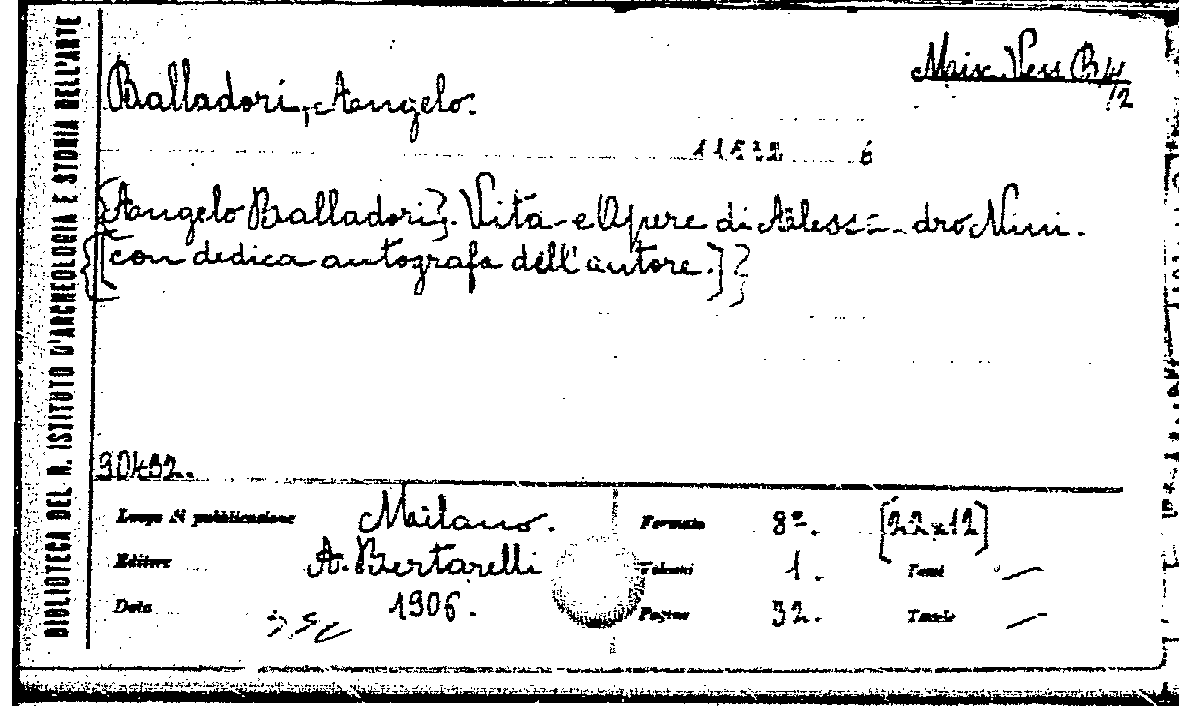 BIBLIOTECA DEL R. ISTITUTO D'ARCHEOLOGIA E STORIA DELL'ARTE
Misc. Ven B4/12
Balladori, Angelo.
6
[Angelo Balladori]. Vita e Opere di Alessandro Nini.
[con dedica autografa dell'autore.]
90432.
Luogo di pubblicazione Milano. Formato 8º. [22x12]
Editore A. Bertarelli Volumi 1. Tomi —
Data 1906. Pagine 32. Tavole —